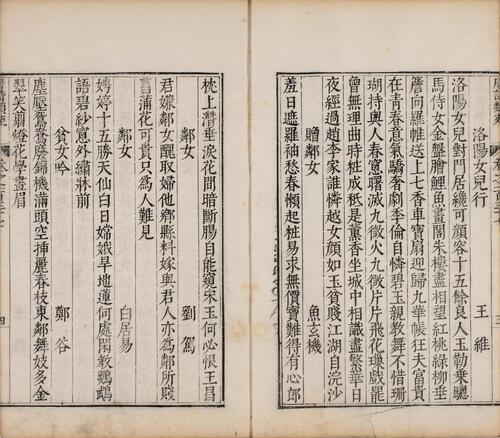 洛陽女兒行
王維
洛陽女兒對門居纔可顏容十五餘良人玉勒乗驄
馬侍女金盤膾鯉魚畫閣朱樓盡相望紅桃綠柳垂
簷向羅帷送上七香車寶扇迎歸九華帳狂夫富貴
在青春意氣驕奢劇季倫自憐碧玉親教舞不惜珊
瑚持與人春窻曙滅九微火九微片片飛花璅戲罷
曾無理曲時粧成秪是薫香坐城中相識盡繁華日
夜經過趙李家誰憐越女顏如玉貧賤江湖自浣沙
贈鄰女
魚玄機
羞日遮羅袖愁春懶起粧易求無價寶難得有心郎
枕上潛垂淚花間暗斷腸自能窺宋玉何必恨王昌
鄰女
劉駕
君嫌鄰女醜取婦他鄉縣料嫁與君人亦為鄰所賤
菖蒲花可貴只為人難見
鄰女
白居易
娉婷十五勝天仙白日嫦娥旱地蓮何處閑教鸚鵡
語碧紗窻外繡牀前
貧女吟
鄭谷
塵壓鴛鴦廢錦機滿頭空揷麗春枝東鄰舞妓多金
翠笑剪燈花學畫眉
四